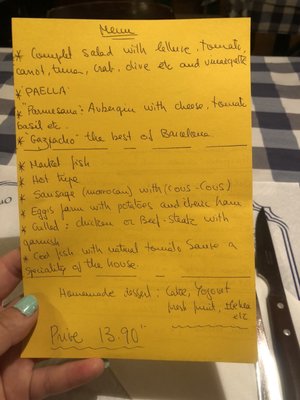 Menu
* Complet salad with lettuce, tomato,
carrot, tuna, crab, olive etc and vinaigrette
* PAELLA
* "Parmesana": Aubergin with cheese, tomato
basil etc..
* Gazpacho "the best of Barcelona
* Market fish
* Hot tripe
* Sausage (moroccan) with (cous-cous)
* Eggs farm with potatoes and iberic ham
* Grilled: chicken or Beef-Steak with
garnish
* Cod fish with natural tomato sauce a
speciality of the house.
Homemade dessert: Cake, Yogourt
fresh fruit, icecream
etc
Price 13.90"